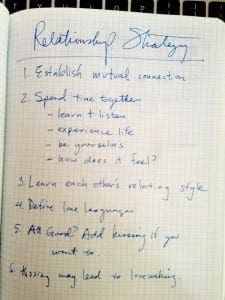 Relationship Strategy
1. Establish mutual connection
2. Spend time together
- learn + listen
- experience life
- be yourselves
- how does it feel?
3. Learn each other's relating style
4. Define love languages
5. All Good? Add kissing if you
want to.
6. Kissing may lead to lovemaking.